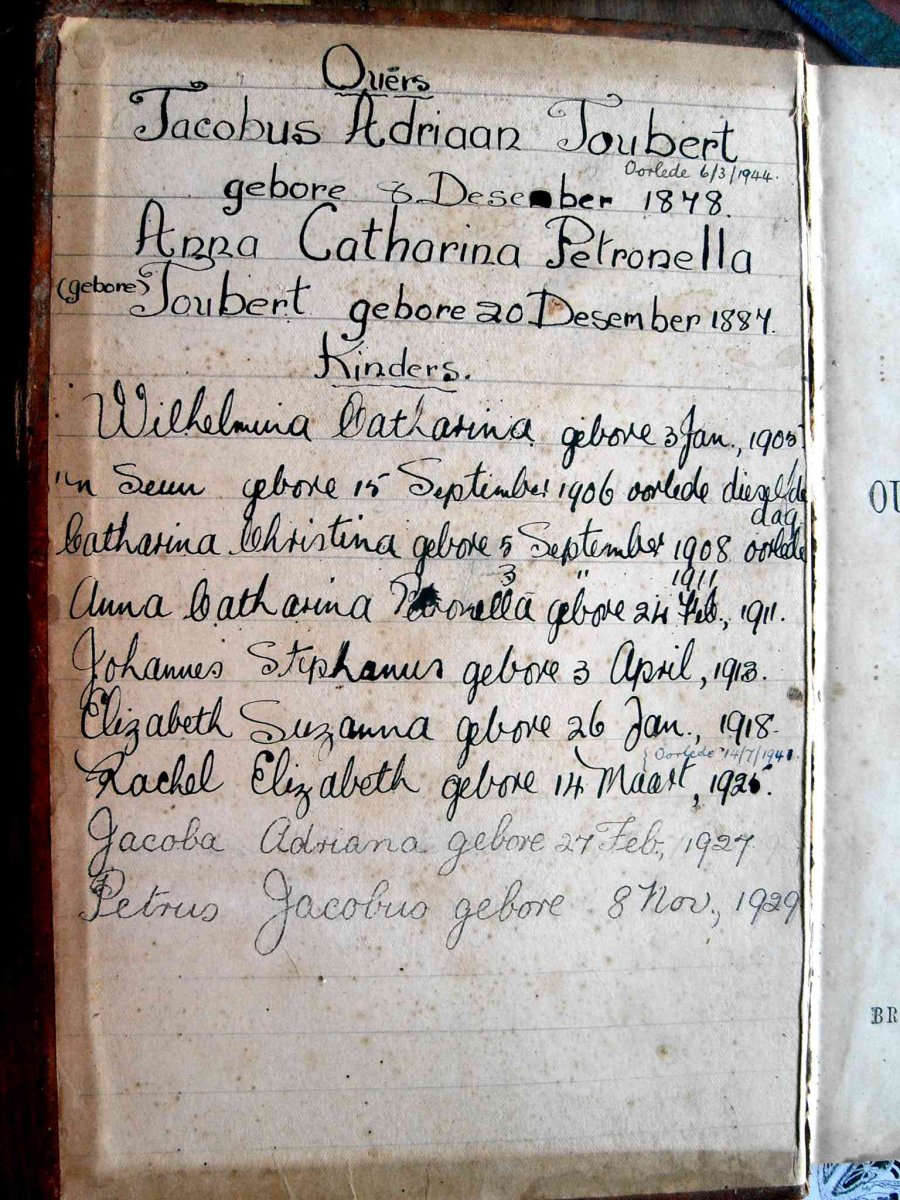 Ouërs
Jacobus Adriaan Joubert
Oorlede 6/3/1944.
gebore 8 Desember 1878.
Anna Catharina Petronella
(gebore) Joubert gebore 20 Desember 1884.
Kinders.
Wilhelmina Catharina gebore 3 Jan., 1905
'n Seun gebore 15 September 1906 oorlede dieselfde
dag
Catharina Christina gebore 5 September 1908 oorlede
3 " 1911
Anna Catharina Petronella gebore 24 Feb., 1911.
Johannes Stephanus gebore 3 April, 1913.
Elizabeth Suzanna gebore 26 Jan., 1918.
Oorlede 14/7/1941
Rachel Elizabeth gebore 14 Maart, 1925.
Jacoba Adriana gebore 27 Feb., 1927
Petrus Jacobus gebore 8 Nov., 1929
OU
BR